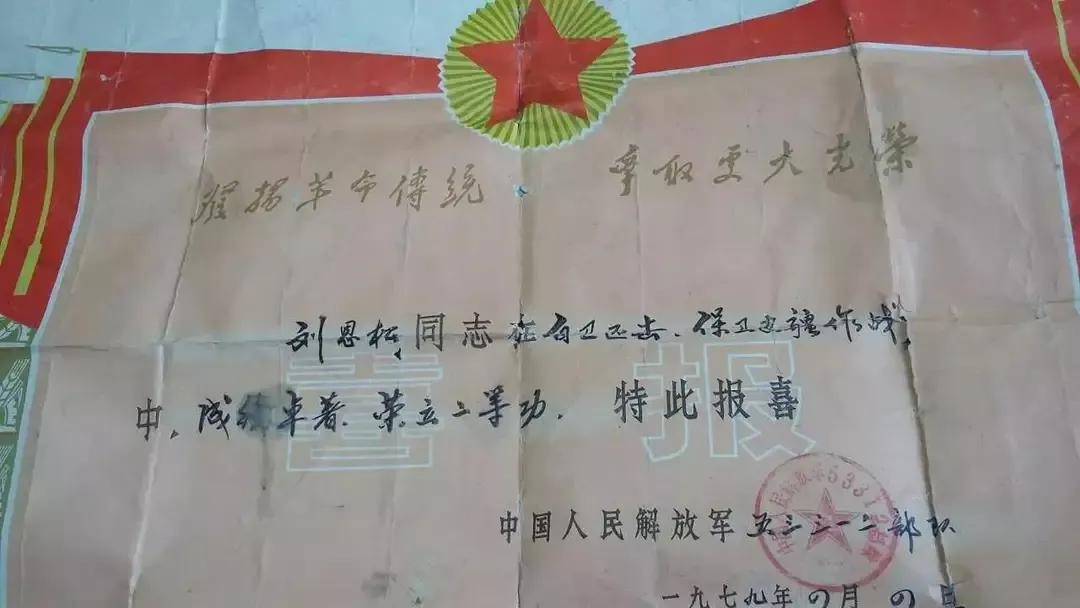 發揚革命傳統 爭取更大光榮
刘恩松同志在自卫还击、保卫边疆作战
中，成绩卓著、荣立二等功，特此报喜
喜报
中国人民解放军五三三一二部队
一九七九年四月四日